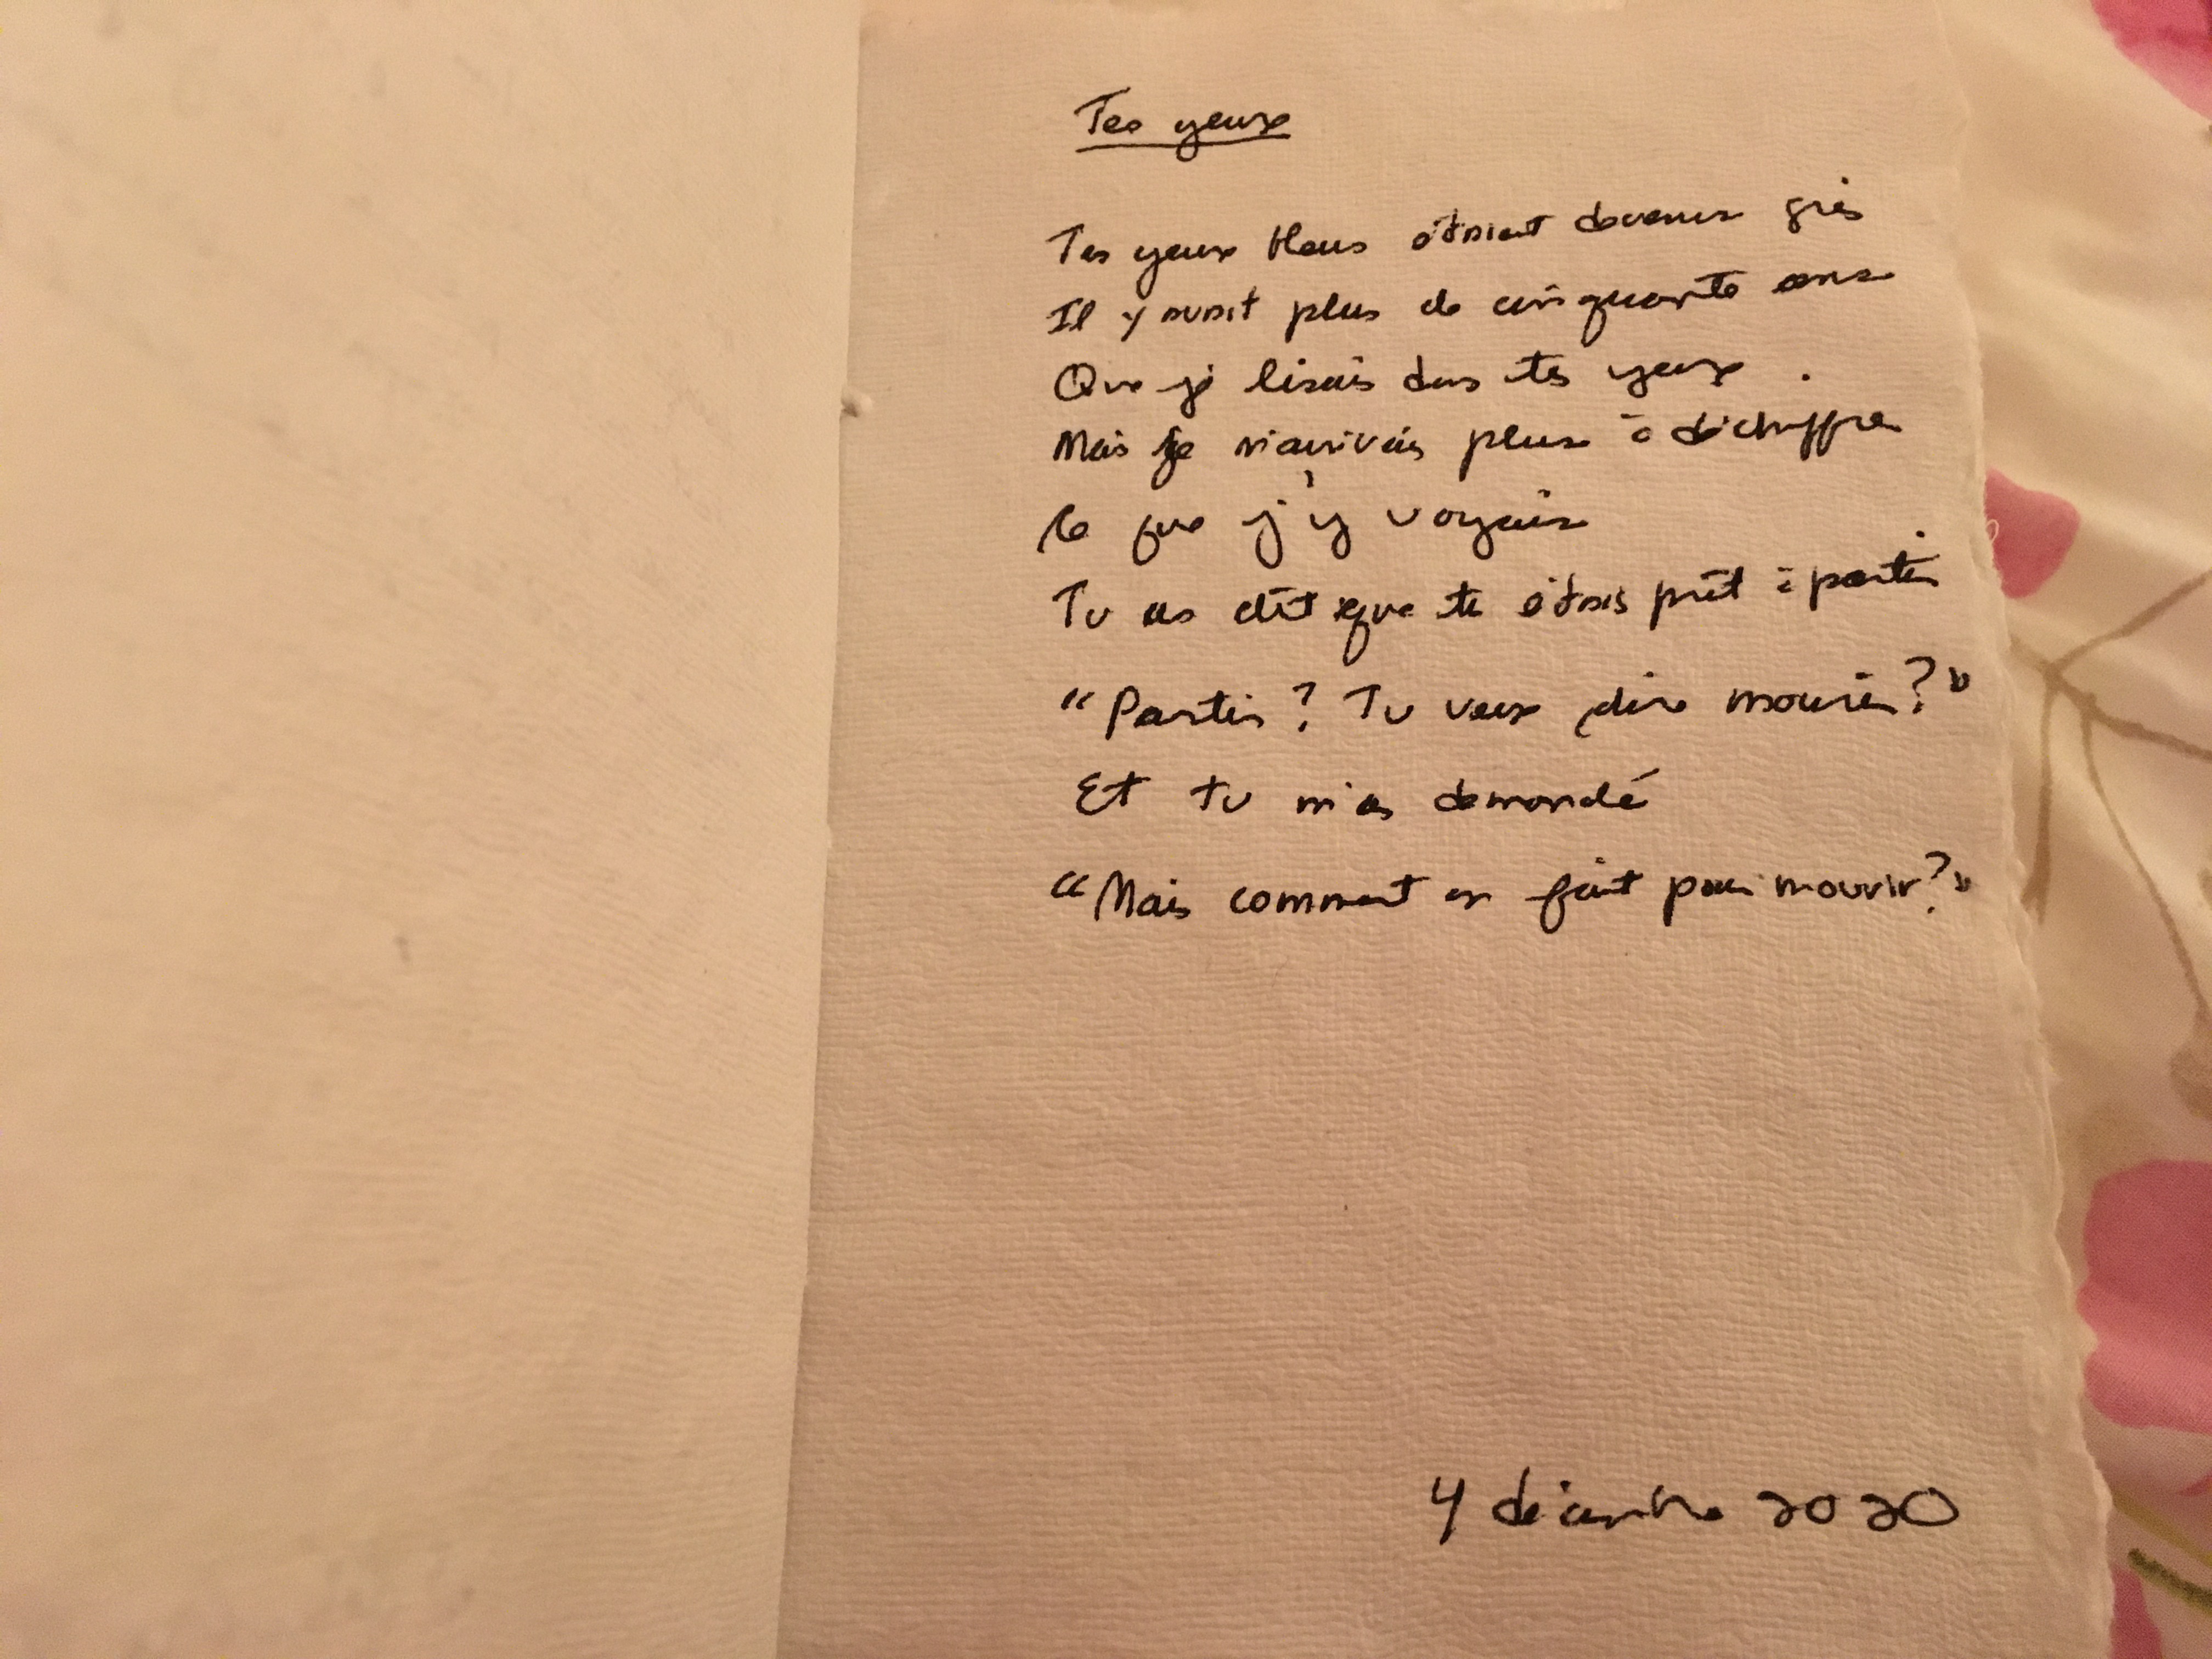 Tes yeux
Tes yeux bleus étaient devenus gris
Il y avait plus de cinquante ans
Que je lisais dans tes yeux.
Mais je n'arrivais plus à déchiffrer
Ce que j'y voyais
Tu as dit que tu étais prêt à partir
"Partir? Tu veux dire mourir?"
Et tu m'as demandé
"Mais comment on fait pour mourir?"
4 décembre 2020